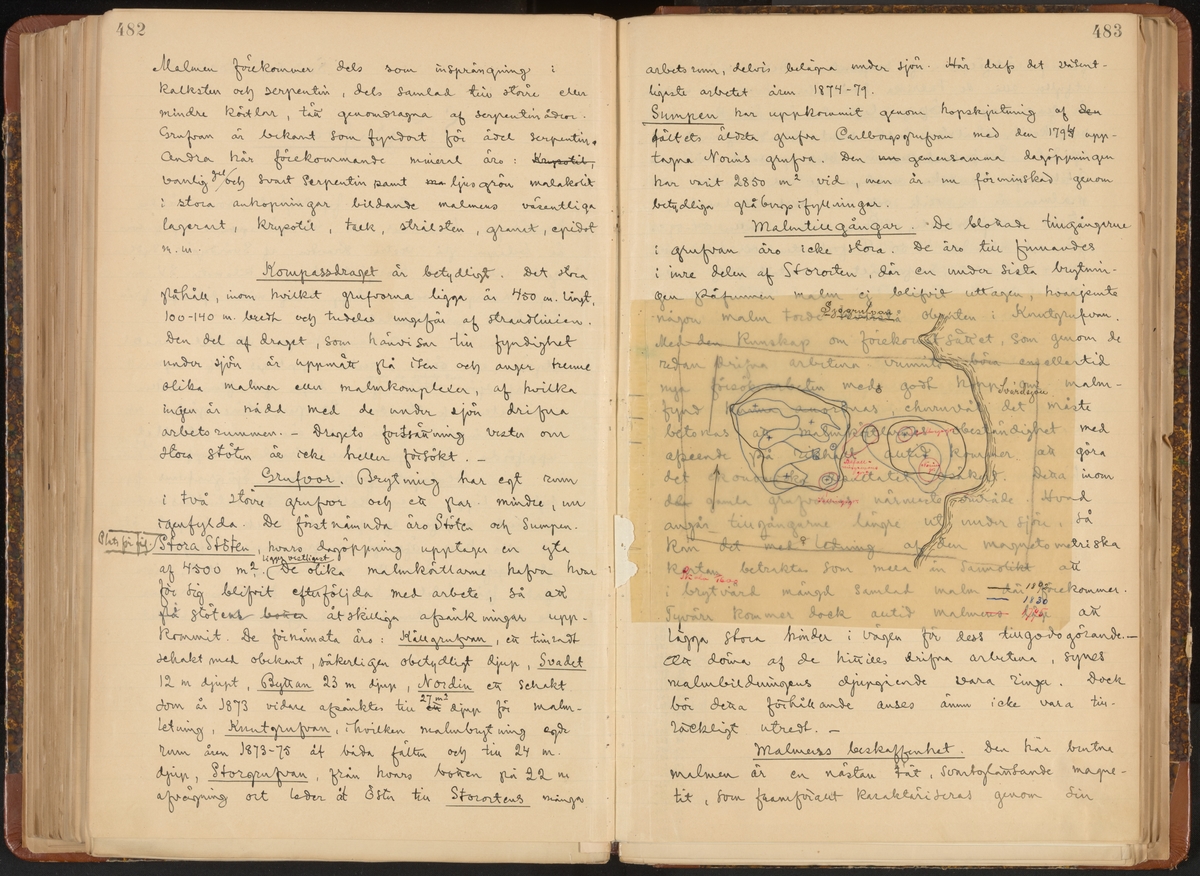 482
Malmen förekommer dels som insprängning i
kalksten och serpentin, dels samlad till större eller
mindre körtlar, tätt genomdragna af serpentinådror.
Grufvan är bekant som fyndort för ädel serpentin.
Andra här förekommande mineral äro: Krysotil,
vanlig och svart Serpentin samt ljusgrön malakolit
i stora anhopningar bildande malmens väsentliga
lagerart, krysotil, talk, strålsten, granat, epidot
m.m.
Kompassdraget är betydligt. Det stora
påhåll, inom hvilket grufvorna ligga är 450 m. långt,
100-140 m. bredt och tudelas ungefär af strandlinien.
Den del af draget, som hänvisar till fyndighet
under sjön är uppmätt på isen och anger trenne
olika malmer eller malmkomplexer, af hvilka
ingen är nådd med de under sjön drifna
arbetsrummen. – Dragets fortsättning vester om
stora stöten är icke heller försökt. –
Grufvor. Brytning har egt rum
i två större grufvor och ett par mindre, nu
igenfylda. De förstnämnda äro Stöten och Sumpen.
Plats för fig. Stora Stöten, hvars dagöppning upptager en yta
af 4500 m². De olika malmkörtlarne hafva hvar
för sig blifvit efterföljda med arbete, så att
på stötens botten åtskilliga afsänkningar upp-
kommit. De förnämsta äro: Hällgrufvan, ett tunnt
schakt med obekant, säkerligen obetydligt djup, Svadet
12 m djupt, Byttan 23 m djup, Nordin ett schakt
som år 1873 vidare afsänktes till 27 m² djup för malm-
letning, Knutgrufvan, i hvilken malmbrytning egde
rum åren 1873-75 åt båda fälten och till 24 m.
djup, Storgrufvan, från hvars botten på 22 m
afvägning ort leder åt Öster till Storortens många
483
arbetsrum, delvis belägna under sjön. Här drefs det väsent-
ligaste arbetet åren 1874-79.
Sumpen har uppkommit genom hopskjutning af den
fältets äldsta grufva Carlborgsgrufvan med den 1794 upp-
tagna Norins grufva. Den gemensamma dagöppningen
har varit 2850 m² vid, men är nu förminskad genom
betydliga gråbergsifyllningar.
Malmtillgångar. De blottade tillgångarne
i grufvan äro icke stora. De äro till finnandes
i inre delen af Stororten, där en under sista brytnin-
gen påfunnen malm ej blifvit uttagen, hvarjemte
någon malm torde obruten i Knutgrufvan.
Sjögrufvan
Med den kunskap om förekomstsättet, som genom de
redan drifna arbetena vunnits böra emellertid
nya försöksarbeten med godt hopp om malm-
Svardsjön
fynd kunna anordnas, churuväl det måste
betonas att malmkörtlarnes obeständighet med
afseende på rikhalt alltid kommer att göra
det ekonomiska resultatet osäkert. Detta inom
den gamla grufvans närmaste område. Hvad
angår tillgångarne längre ut under sjön, så
kan det med ledning af den magnetometriska
kartan betraktas som mera än sannolikt att
i brytvärd mängd samlad malm här förekommer.
1895
1830
Tyvärr kommer dock alltid malmens att
lägga stora hinder i vägen för dess tillgodogörande. –
Att döma af de hittills drifna arbetena, synes
malmbildningens djupgående vara ringa. Dock
bör detta förhållande anses ännu icke vara till-
räckligt utredt. –
Malmens beskaffenhet. Den här brutna
malmen är en nästan tät, svartglänsande magne-
tit, som framförallt karaktäriseras genom sin